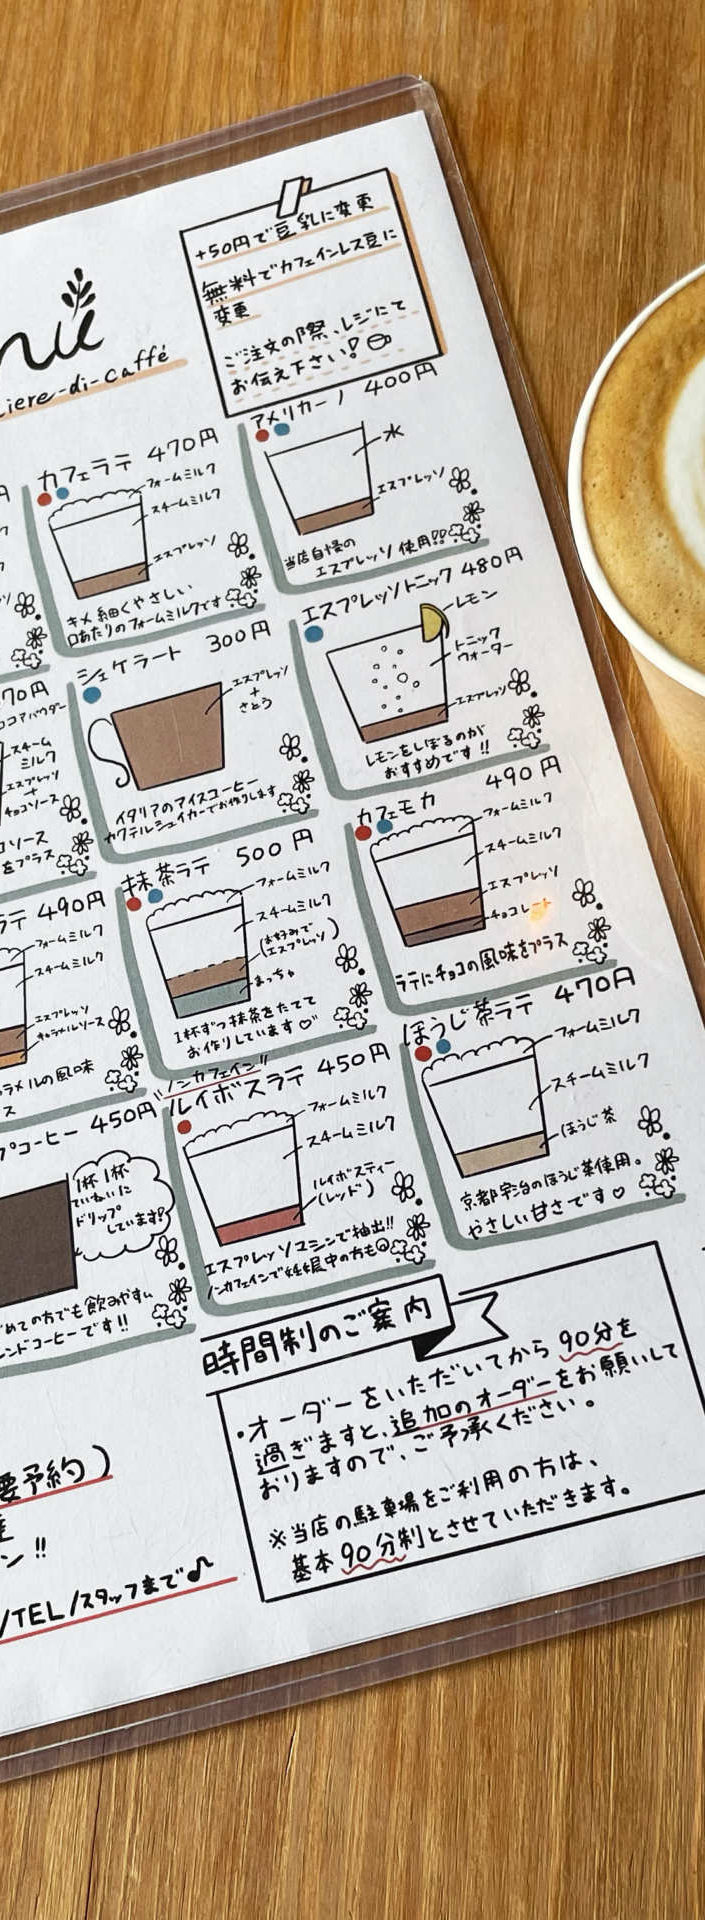 +50円で豆乳に変更
無料でカフェインレス豆に
変更
ご注文の際、レジにて
お伝え下さい!
iere-di-caffé
カフェラテ 470円
フォームミルク
スチームミルク
エスプレッソ
キメ細くやさしい
口あたりのフォームミルクです
アメリカーノ 400円
水
エスプレッソ
当店自慢の
エスプレッソ使用!!
シェケラート 300円
エスプレッソ
+
さとう
イタリアのアイスコーヒー
カクテルシェイカーでお作りします
エスプレッソトニック 480円
レモン
トニック
ウォーター
エスプレッソ
レモンをしぼるのが
おすすめです!!
70円
ココアパウダー
スチーム
ミルク
エスプレッソ
+
チョコソース
コソース
をプラス
抹茶ラテ 500円
フォームミルク
スチームミルク
(お好みで
エスプレッソ)
まっちゃ
1杯ずつ抹茶をたてて
お作りしています♡
カフェモカ 490円
フォームミルク
スチームミルク
エスプレッソ
チョコレート
ラテにチョコの風味をプラス
ラテ 490円
フォームミルク
スチームミルク
エスプレッソ
キャラメルソース
ラメルの風味
ス
ノンカフェイン!!
ルイボスラテ 450円
フォームミルク
スチームミルク
ルイボスティー
(レッド)
エスプレッソマシンで抽出!!
ノンカフェインで妊娠中の方も
ほうじ茶ラテ 470円
フォームミルク
スチームミルク
ほうじ茶
京都宇治のほうじ茶使用。
やさしい甘さです♡
プコーヒー 450円
1杯1杯
ていねいに
ドリップ
しています!
めての方でも飲みやすい
レンドコーヒーです!!
時間制のご案内
・オーダーをいただいてから90分を
過ぎますと、追加のオーダーをお願いして
おりますので、ご予承ください。
※当店の駐車場をご利用の方は、
基本90分制とさせていただきます。
要予約)
ン!!
/TEL/スタッフまで♪